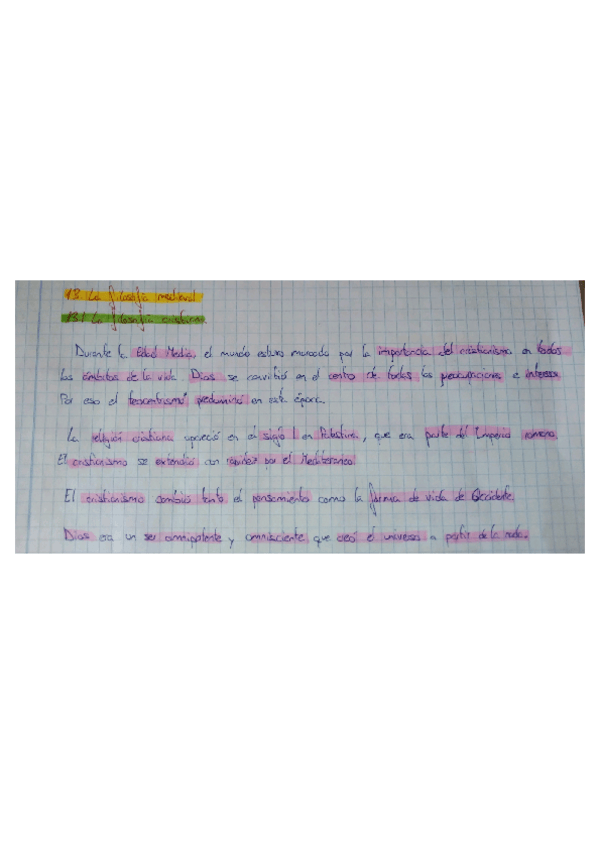 13 La filosofía medieval
13.1 La filosofía cristiana.
Durante la Edad Media, el mundo estuvo marcado por la importancia del cristianismo en todos
los ámbitos de la vida. Dios se convirtió en el centro de todas las preocupaciones e intereses
Por eso el teocentrismo predominó en esta época.
La religión cristiana apareció en el siglo I en Palestina, que era parte del Imperio romano.
El cristianismo se extendió con rapidez por el Mediterraneo
El cristianismo cambió tanto el pensamiento como la forma de vida de Occidente.
Dios era un ser omnipotente y omnisciente que creó el universo a partir de la nada.